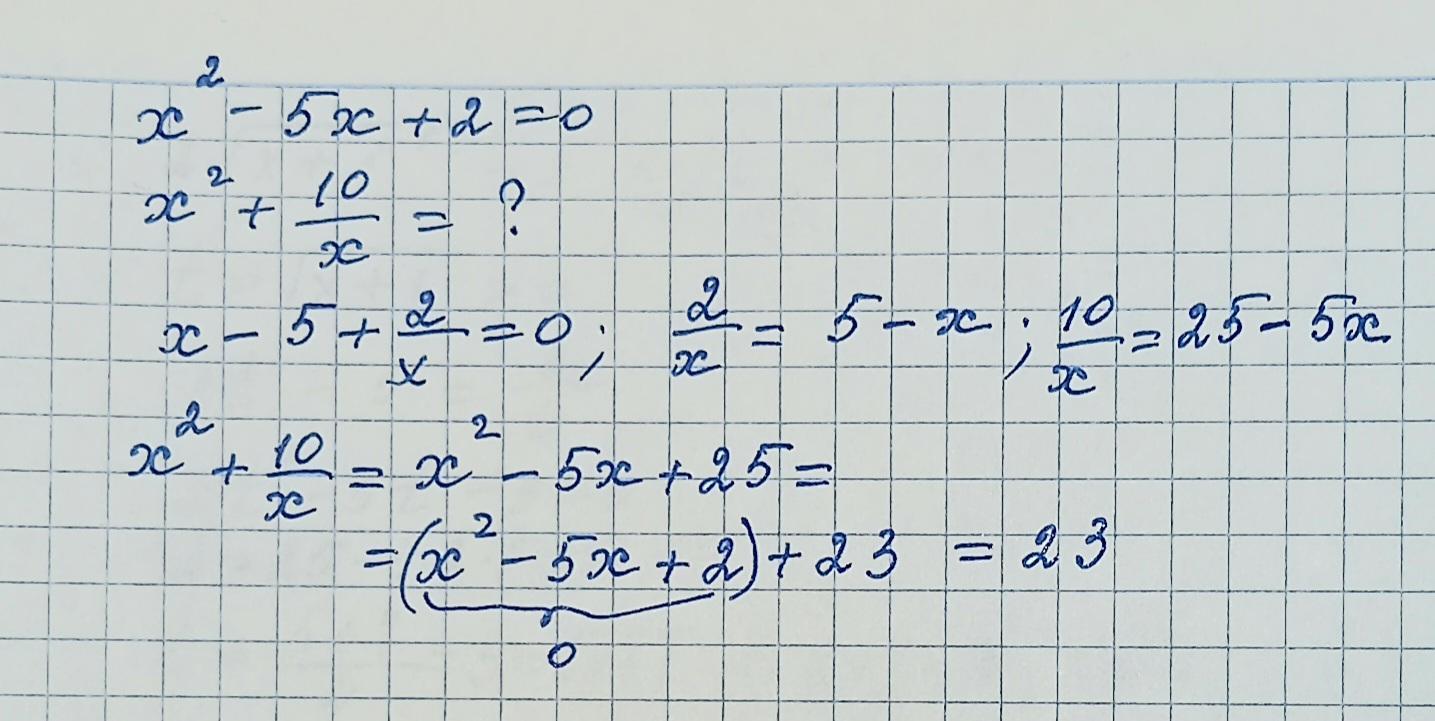 x² - 5x + 2 = 0
x² + 10/x = ?
x - 5 + 2/x = 0; 2/x = 5 - x; 10/x = 25 - 5x
x² + 10/x = x² - 5x + 25 =
= (x² - 5x + 2) + 23 = 23
0